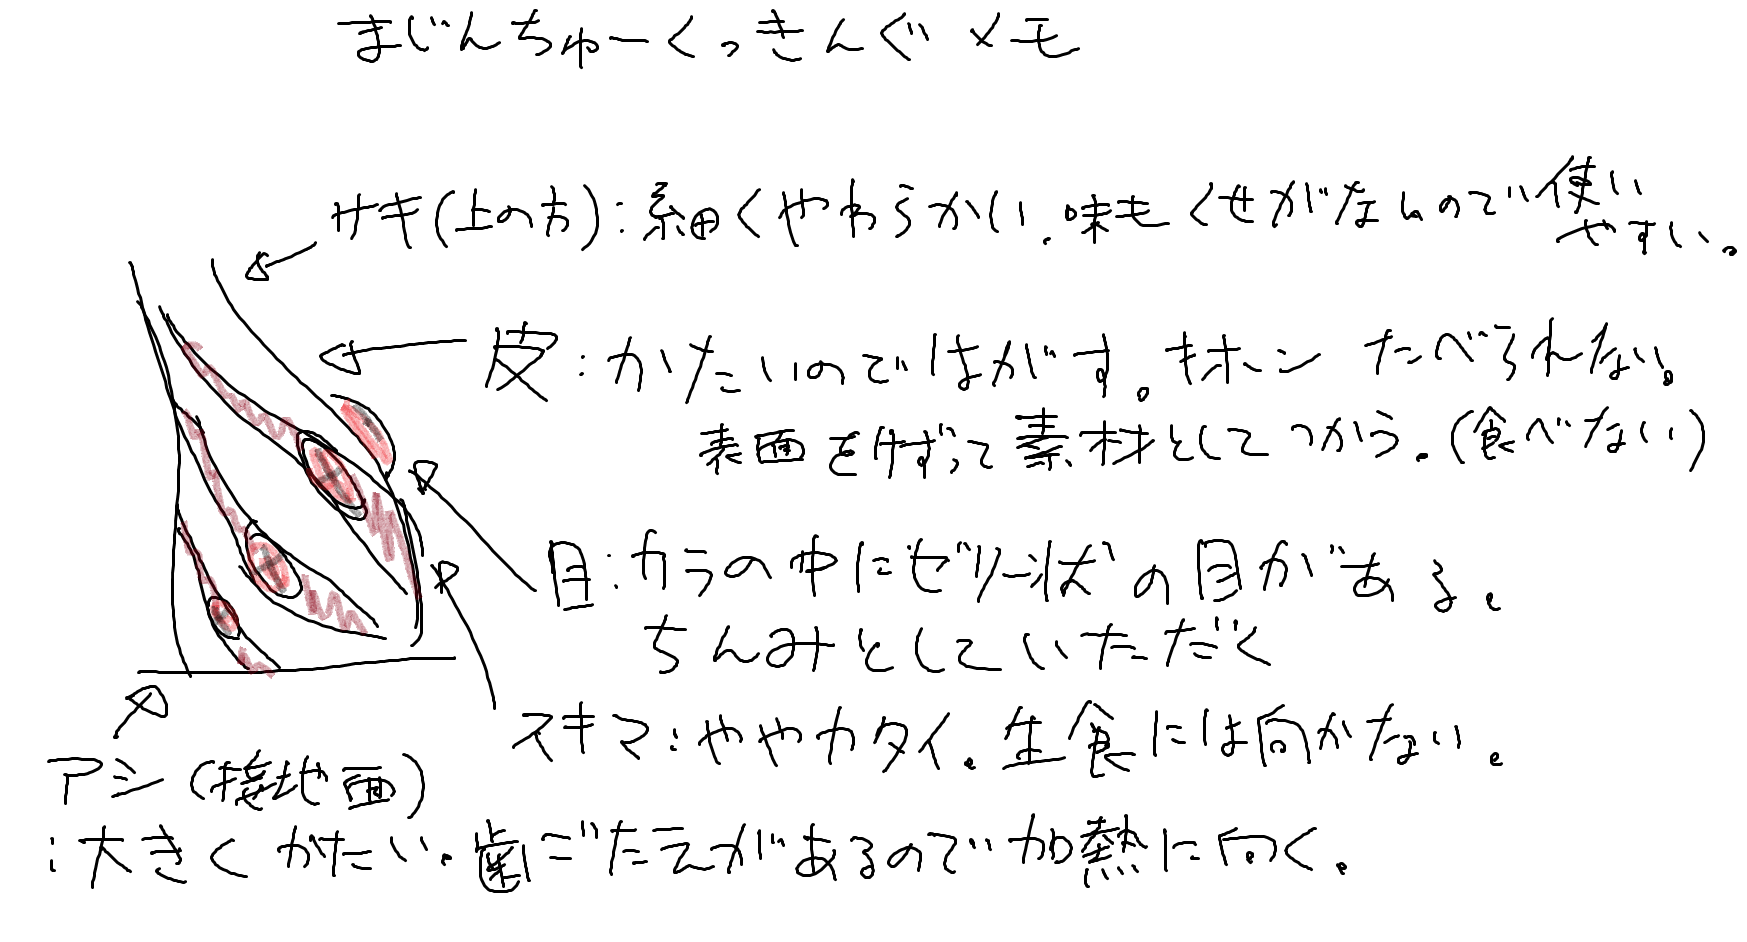 まじんちゅーくっきんぐメモ
サキ(上の方):細くやわらかい.味もくせがないので使い
やすい。
皮:かたいのではがす。キホーン たべられない。
表面をけずって素材としてつかう.(食べない)
目:カラの中にゼリー状の目がある.
ちんみとしていただく
スキマ:ややカタイ.生食には向かない.
アシ(接地面)
:大きくかたい.歯ごたえがあるので加熱に向く.